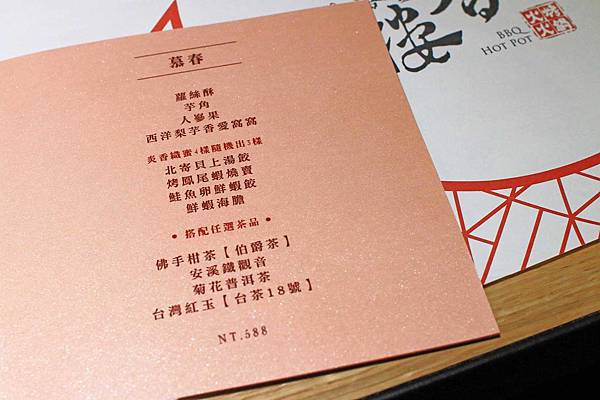 慕春
蘿絲酥
芋角
人蔘果
西洋梨芋香愛窩窩
炎香鐵蜜4樣隨機出3樣
北寄貝上湯餃
烤鳳尾蝦燒賣
鮭魚卵鮮蝦餃
鮮蝦海膽
• 搭配任選茶品 •
佛手柑茶【伯爵茶】
安溪鐵觀音
菊花普洱茶
台灣紅玉【台茶18號】
NT.588
BBQ
HOT POT